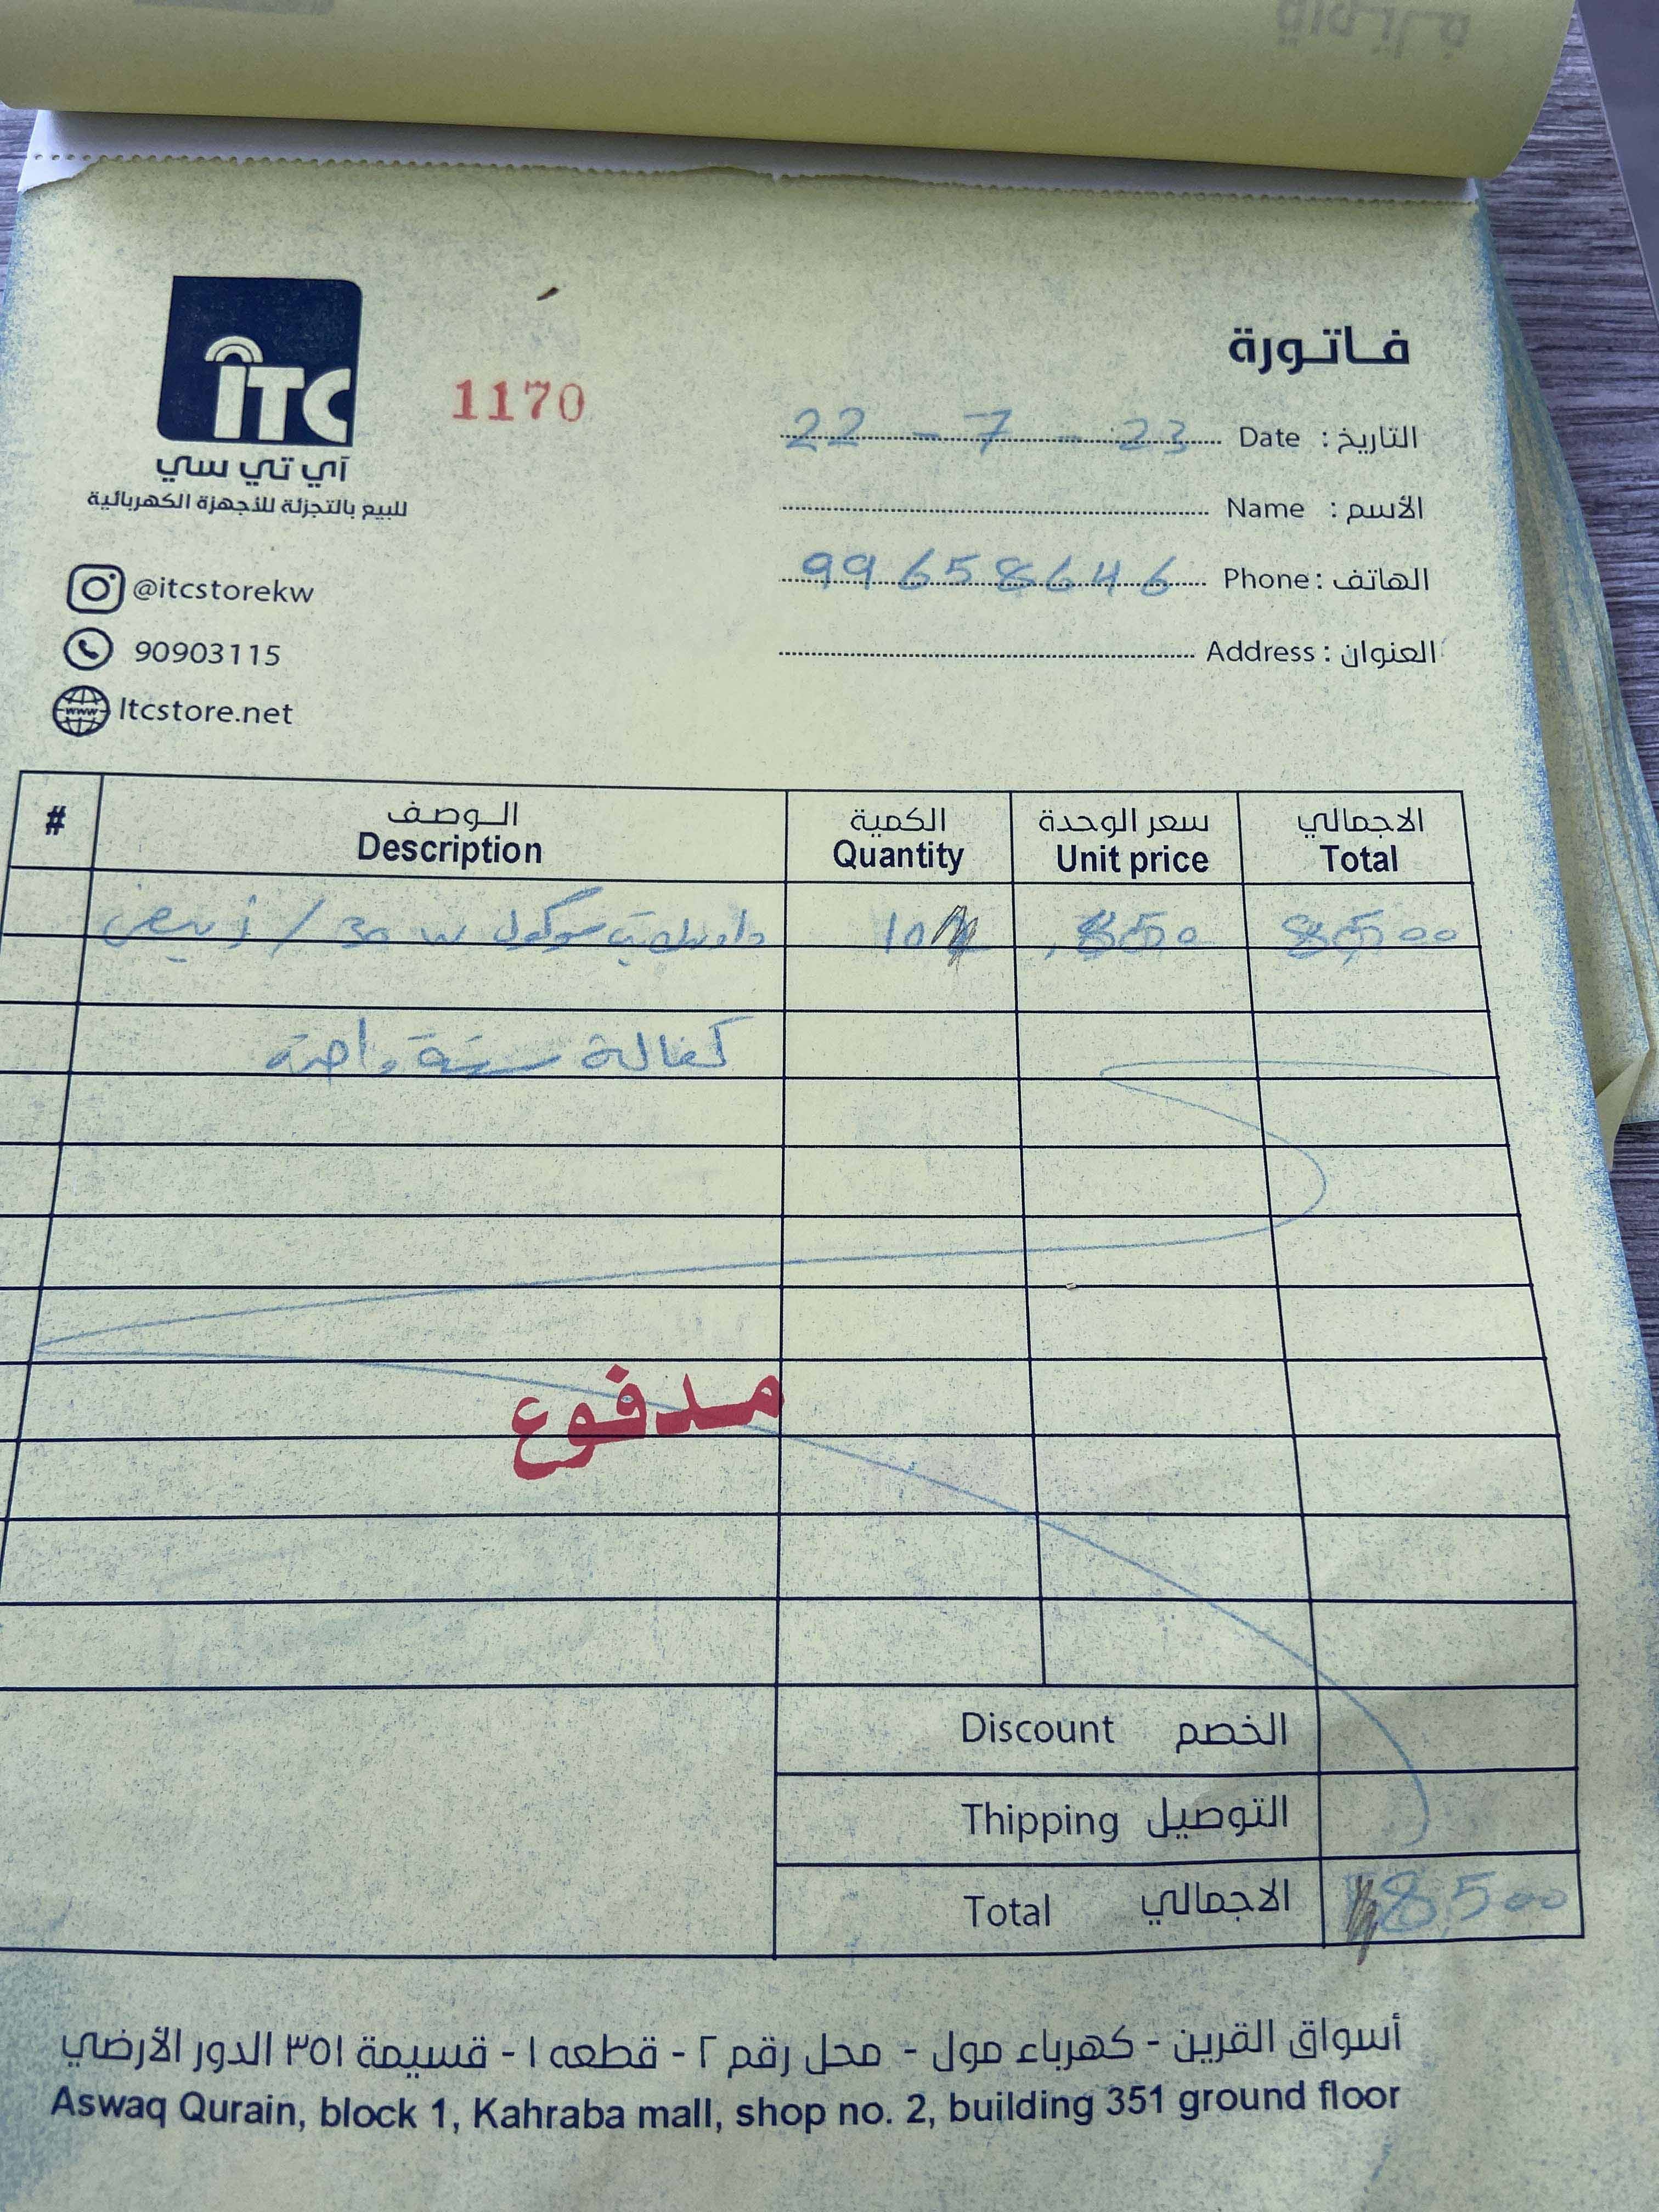 ITC
آي تي سي
للبيع بالتجزئة للأجهزة الكهربائية
1170
فـاتـورة
التاريخ : Date 22 - 7 - 23
الأسم : Name
الهاتف : Phone 99658646
العنوان : Address
@itcstorekw
90903115
Itcstore.net
# الـوصـف الكمية سعر الوحدة الاجمالي
Description Quantity Unit price Total
داونلايت سوكول 30 w / ابيض 10 ,850 8,500
كفالة سنة واحدة
مـدفـوع
Discount الخصم
Thipping التوصيل
Total الاجمالي 8,500
أسواق القرين - كهرباء مول - محل رقم ٢ - قطعه ١ - قسيمة ٣٥١ الدور الأرضي
Aswaq Qurain, block 1, Kahraba mall, shop no. 2, building 351 ground floor